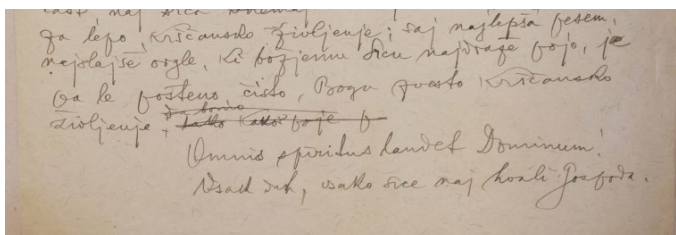 čast, naj srca
za lepo, krščansko življenje; saj najlepša pesem,
najslajše orgle, ki božjemu Srcu najdražje pojo, je
pa le pošteno čisto, Bogu zvesto krščansko
življenje,
Omnis spiritus laudet Dominum!
Vsak duh, vsako srce naj hvali Gospoda.